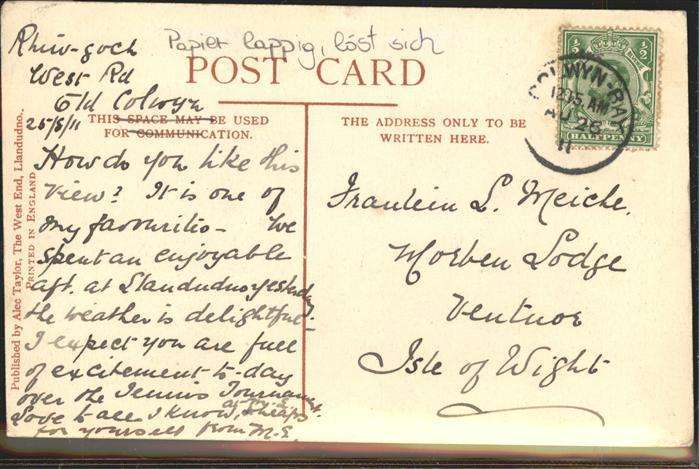 Rhiw-goch
West Rd
Old Colwyn
25/8/11
Papier lappig, löst sich
POST CARD
THIS SPACE MAY BE USED
FOR COMMUNICATION.
THE ADDRESS ONLY TO BE
WRITTEN HERE.
How do you like this
view? It is one of
my favourites - We
spent an enjoyable
aft. at Llandudno yesterday.
the weather is delightful.
I expect you are full
of excitement to-day
over the Tennis Tournament.
Love to all I know, & heaps
for yourself from M.E.
Fraulein L. Meiche.
Morben Lodge
Ventnor
Isle of Wight
COLWYN-BAY
12.15 AM
AU 26
11
HALFPENNY
1/2
1/2
Published by Alec Taylor, The West End, Llandudno.
PRINTED IN ENGLAND